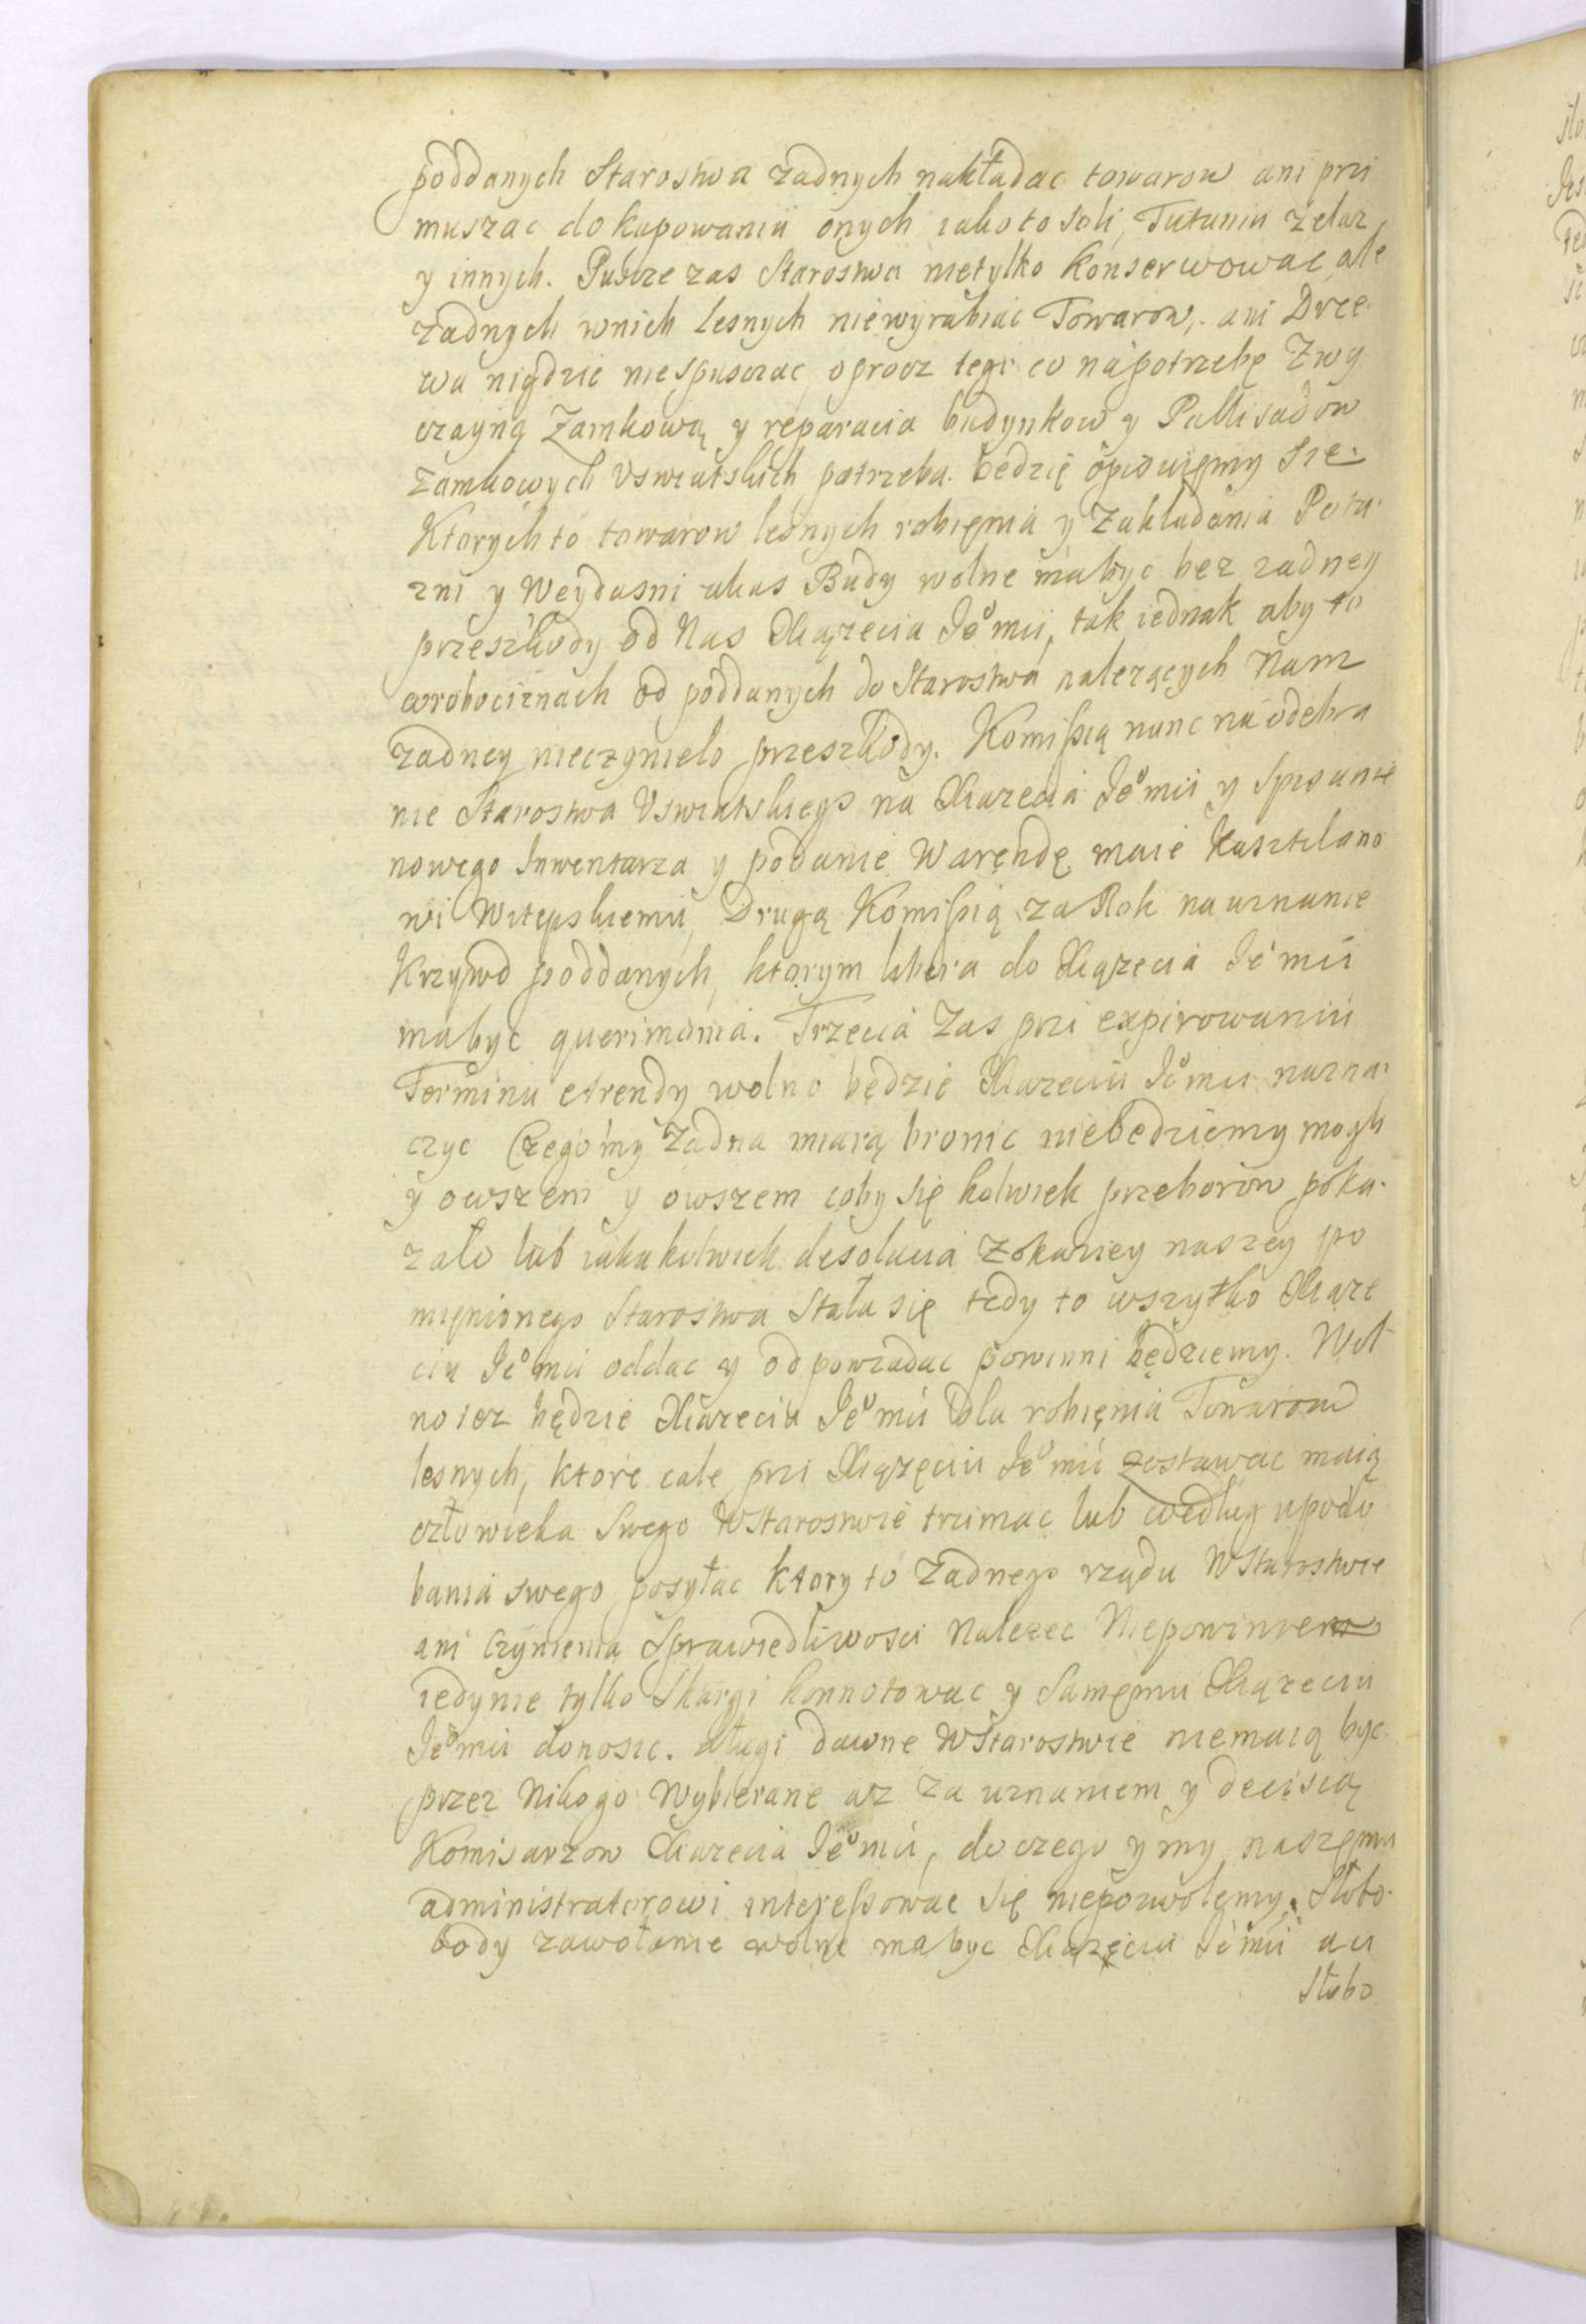 poddanych Starostwa zadnych nakładac towarow ani przi
muszac do kupowaniu onych iako to soli, Tutuniu żelaz
y innych. Puszcze zas Starostwa nietylko konserwowac, ale
zadnych wnich lesnych niewyrabiac Towarow, ani Drze.
wa nigdzie niespuszczac oprocz tego co na potrzebę Zwy
czayną Zamkową y reparacia budynkow y Pallisadow
Zamkowych Uswiatskich potrzeba będzie opisuiemy się.
Ktorych to towarow lesnych robięnia y Zakładania Pota.
zni y Weydasni alias Budy wolne ma byc bez zadney
przeszkody od Nas Xiązecia Jeo mu, tak iednak aby to
wrobociznach od poddanych do Starostwa nalezących Nam
zadney nieczyniело przeszkody. Komissią nunc na odebra
nie Starostwa Uswiatskiego na Xiazecia Jeo mu y Spisanie
nowego Inwentarza y podanie Waręndę maie Kasztelano
wi Witepskiemu, Drugą Komissią za Rok na uznanie
Krzywd poddanych, ktorym libera do Xiązecia Jeo mu
ma byc querimonia. Trzecia Zas przi expirowaniu
Terminu Arendy wolno będzie Xiazeciu Jeo mu nazna.
czyc Czego my Zadna miarą bronic niebedziemy mogli
y owszem y owszem coby się kolwiek przeborow poka.
zało lub iakakolwiek desolacia Zokaziey naszey po
mięnionego Starostwa Stała się tedy to wszytko Xiąze
ciu Jeo mu oddac y odpowiadac powinni będziemy. Wol
no iez będzie Xiazeciu Jeo mu dla robięnia Towarow
lesnych, ktore cale przi Xiązęciu Jeo mu zostawac maią
człowieka Swego WStarostwie trzimac lub według upodo
bania swego posyłac ktory to Zadnego rządu WStarostwie
ani czynienia Sprawiedliwosci Nalezec Niepowinien
iedynie tylko Skargi konnotowac y Samęmu Xiązeciu
Jeo mu donosic. długi dawne WStarostwie niemaią byc
przez Nikogo Wybierane az za uznaniem y decisią
Komisarzow Xiazecia Jeo mu, do czego y my naszęmu
administratorowi interessowac się niepozwolęmy. Słobo.
body zawołanie wolne ma byc Xiązęciu Jeo mu a u
Słobo